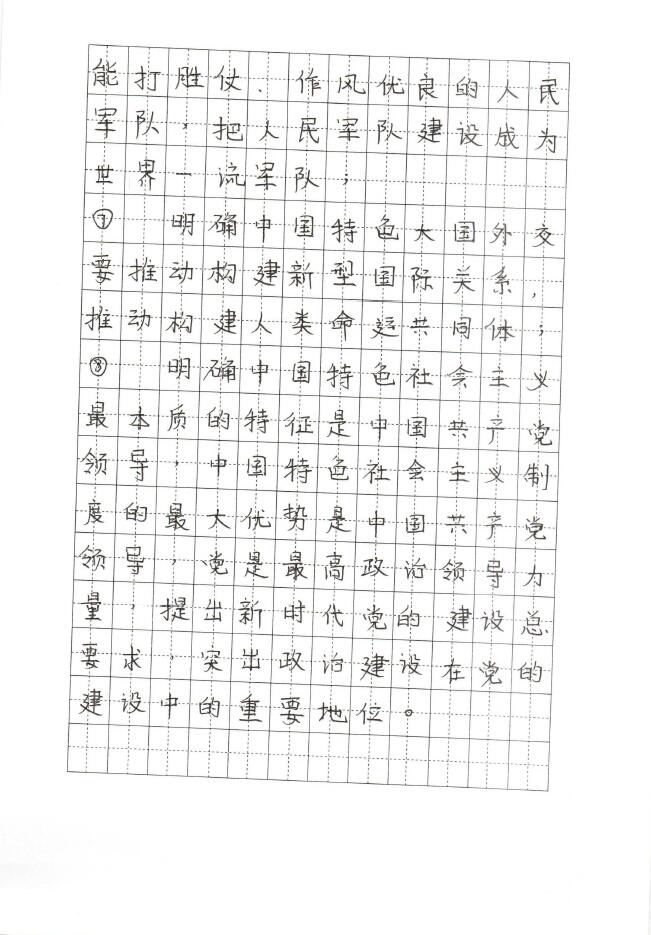 能打胜仗、作风优良的人民
军队，把人民军队建设成为
世界一流军队；
⑦ 明确中国特色大国外交
要推动构建新型国际关系，
推动构建人类命运共同体；
⑧ 明确中国特色社会主义
最本质的特征是中国共产党
领导，中国特色社会主义制
度的最大优势是中国共产党
领导，党是最高政治领导力
量，提出新时代党的建设总
要求，突出政治建设在党的
建设中的重要地位。